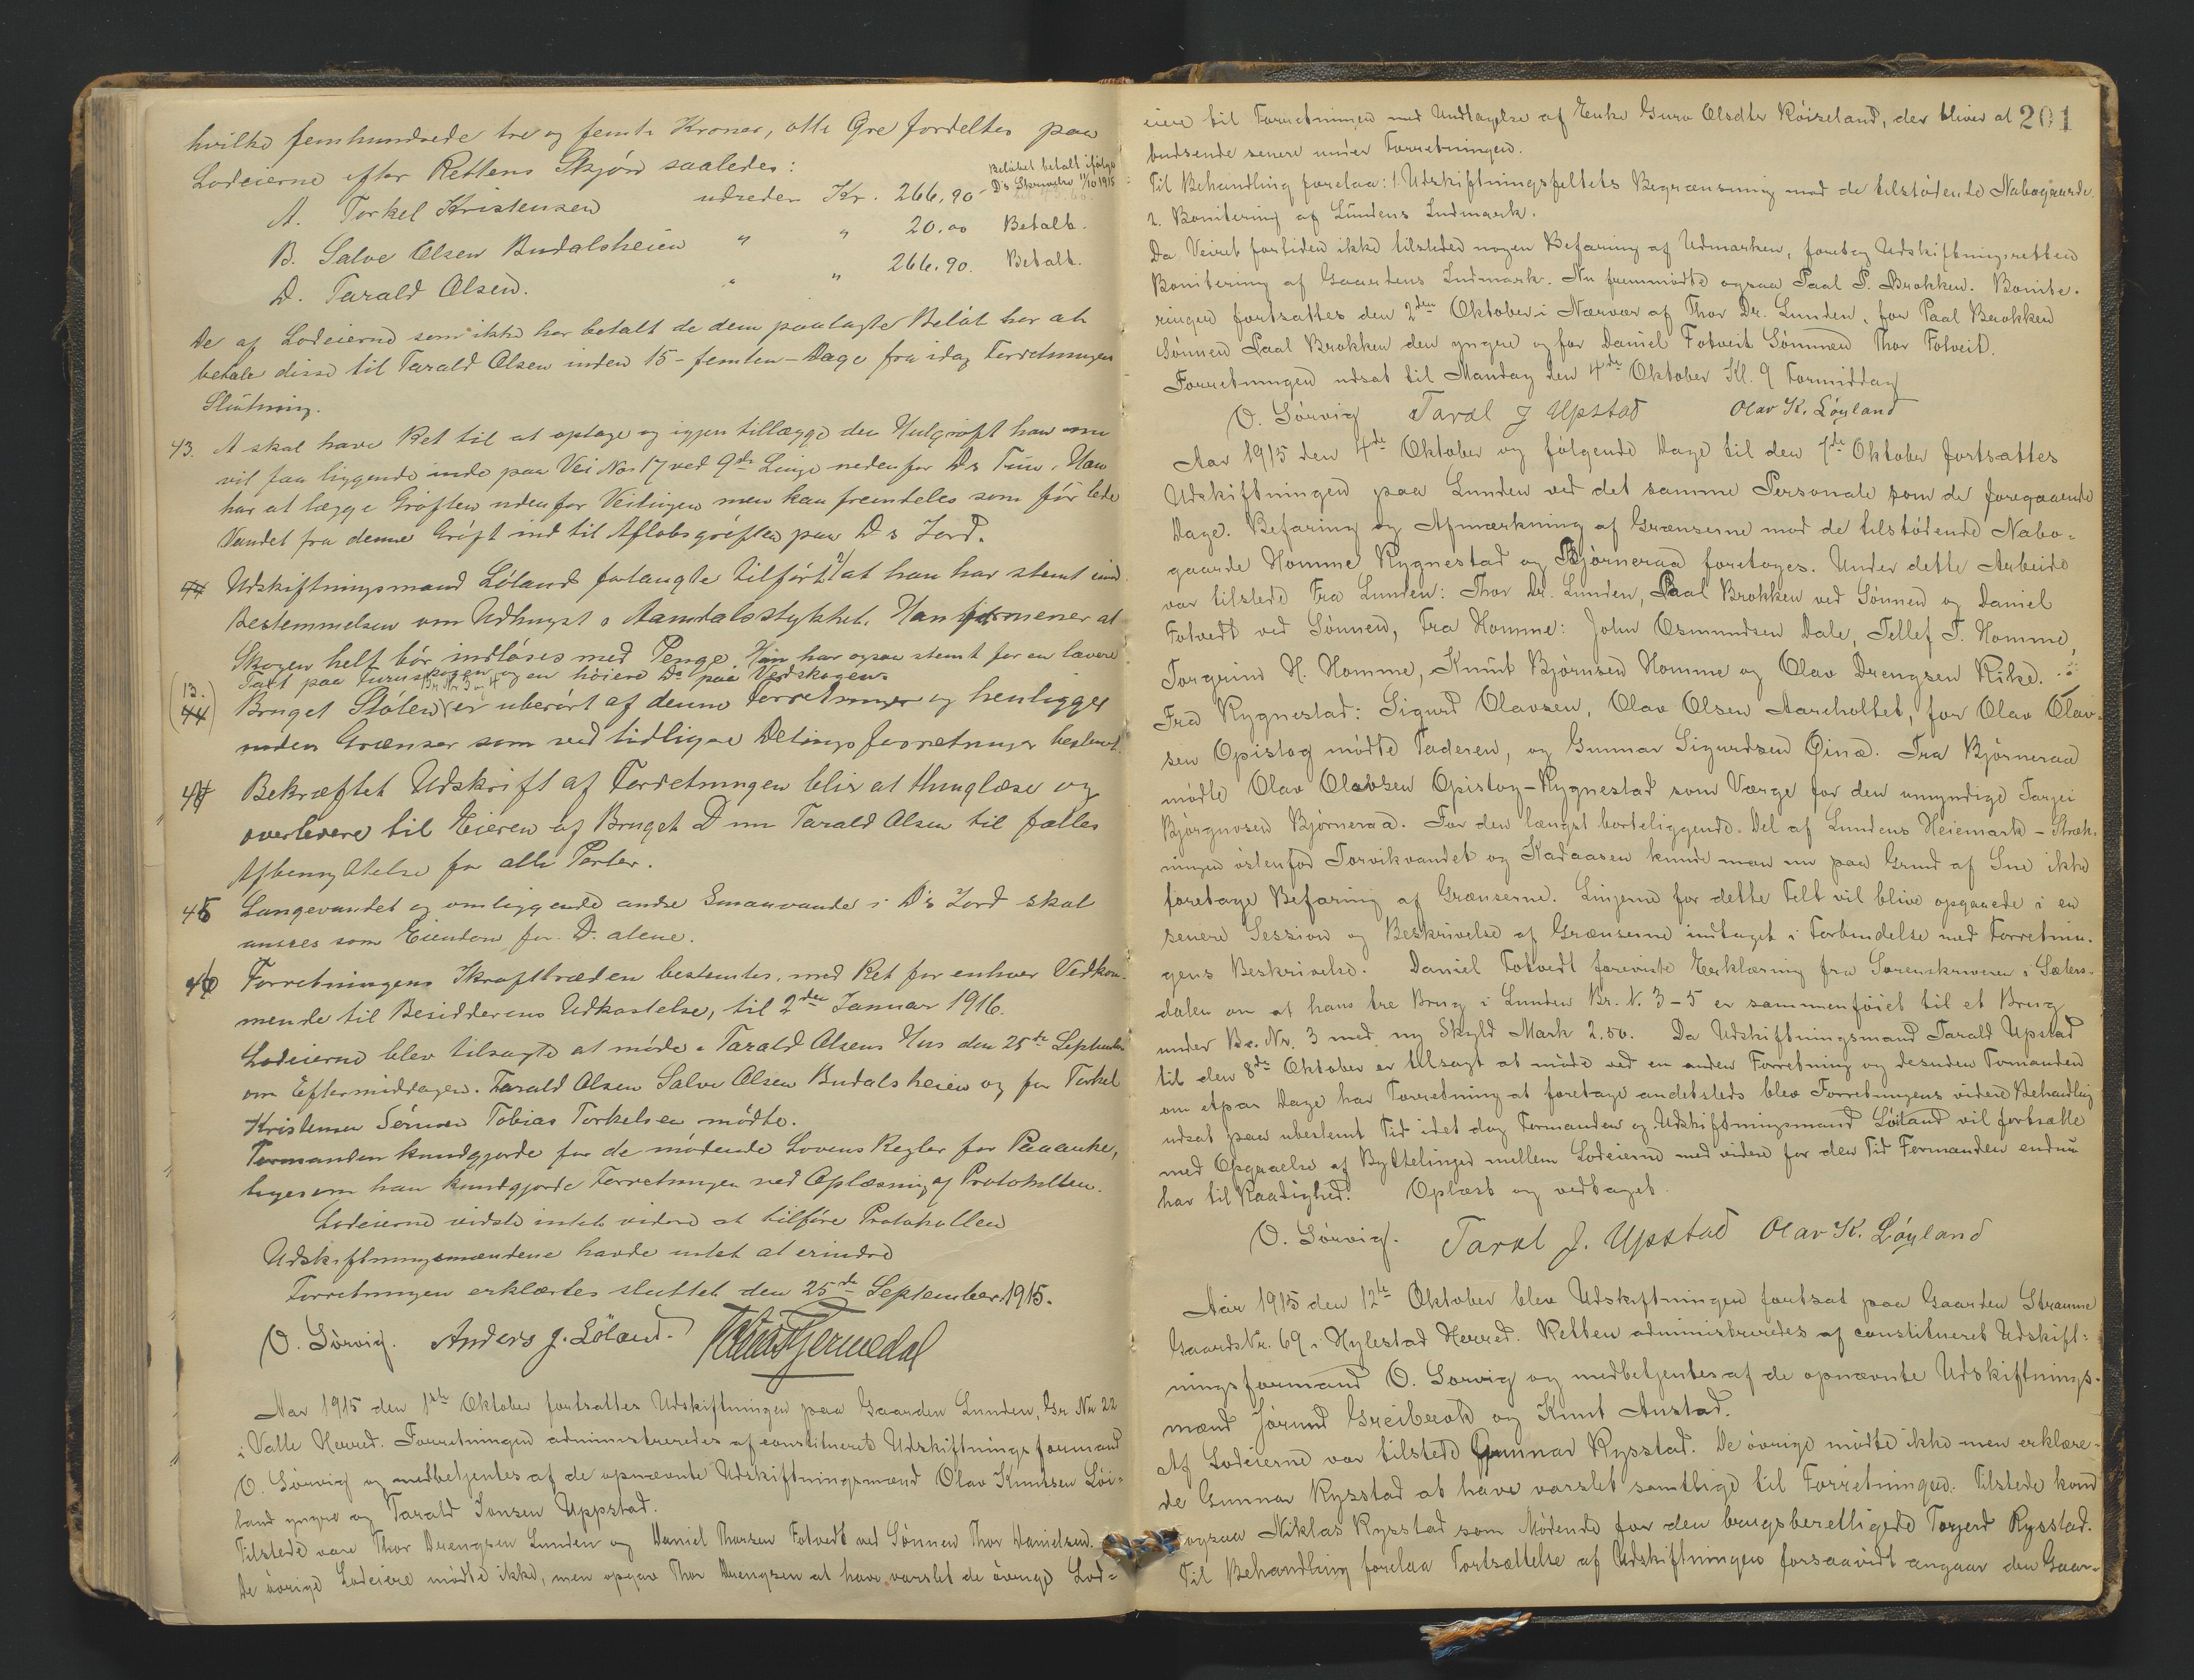 hvilke femhundrede tre og femti Kroner, otti Øre fordeltes paa
Lodeierne efter Rettens Skjøn saaledes:
Beløbet betalt ifølge
D's Skrivelse 11/10 1915
A. Torkel Kristensen udreder Kr. 266,90
B. Salve Olsen Budalsheien " " 20.00 Betalt.
D. Tarald Olsen. " " 266.90. Betalt.
De af Lodeierne som ikke har betalt de dem paalagte Beløb har at
betale disse til Tarald Olsen inden 15 - femten - Dage fra idag Forretningen
Slutning.
43. A skal have Ret til at optage og igjen tillægge den Hulgrøft han nu
vil faa liggende inde paa Vei No 17 ved 9de Linje nedenfor Ds Tun. Han
har at lægge Grøften udenfor Veilinjen men kan fremdeles som før lede
Vandet fra denne Grøft ind til Afløbsgrøften paa D s Jord.
44 Udskiftningsmand Løland forlangte tilført at han har stemt imod
Bestemmelsen om Udhugst i Aamdalsstykket. Han formener at
Skogen helt bør indløses med Penge. Han har ogsaa stemt for en lavere
Taxt paa Furuskogen og en høiere Do paa Vedskogen.
(13.
44) Bruget Stølen Br. Nr. 3 og 4 er uberørt af denne Forretning og henligger
inden Grænser som ved tidligere Delingsforretninger bestemt.
44 Bekræftet Udskrift af Forretningen blir at thinglæse og
overlevere til Eieren af Bruget D nu Tarald Olsen til fælles
Afbenyttelse for alle Parter.
45 Langevandet og omliggende andre Smaavande i D's Jord skal
ansees som Eiendom for D. alene.
46 Forretningens Ikrafttræden bestemtes, med Ret for enhver Vedkom-
mende til Besidderens Udkastelse, til 2den Januar 1916.
Lodeierne blev tilsagte at møde i Tarald Olsens Hus den 25de September
om Eftermiddagen. Tarald Olsen Salve Olsen Budalsheien og for Torkel
Kristensen Sønnen Tobias Torkelsen mødte.
Formanden kundgjorde for de mødende Lovens Regler for Paaanke,
ligesom han kundgjorde Forretningen ved Oplæsning af Protokollen.
Lodeierne vidste intet videre at tilføre Protokollen
Udskiftningsmændene havde intet at erindre
Forretningen erklærtes sluttet den 25de September 1915.
O. Sørvig. Anders J. Løland.
Aar 1915 den 1ste Oktober fortsattes Udskiftningen paa Gaarden Lunden, Gr. Nr 22
i Valle Herred. Forretningen administreredes af constitueret Udskiftningsformand
O. Sørvig og medbetjentes af de opnævnte Udskiftningsmænd Olav Knutsen Løi-
land yngre og Tarald Jonsen Uppstad.
Tilstede vare Thor Drengsen Lunden og Daniel Thorsen Fotvedt ved Sønnen Thor Danielsen.
De øvrige Lodeiere mødte ikke, men opgav Thor Drengsen at have varslet de øvrige Lod-
201
eiere til Forretningen med Undtagelse af Enke Guro Olsdtr Røiseland, der bliver at
budsende senere under Forretningen.
Til Behandling forelaa: 1. Udskiftningsfeltets Begrænsning mod de tilstødende Nabogaarde.
2. Bonitering af Lundens Indmark.
Da Veiret fortiden ikke tilsteder nogen Befaring af Udmarken, foretog Udskiftningsretten
Bonitering af Gaardens Indmark. Nu fremmødte ogsaa Paal P. Brokken. Bonite-
ringen fortsattes den 2den Oktober i Nærvær af Thor Dr. Lunden, for Paal Brokken
Sønnen Paal Brokken den yngre og for Daniel Fotveit Sønnen Thor Fotveit.
Forretningen udsat til Mandag den 4de Oktober Kl. 9 Formiddag
O. Sørvig Taral J Upstad Olav K. Løyland
Aar 1915 den 4de Oktober og følgende Dage til den 7de Oktober fortsattes
Udskiftningen paa Lunden ved det samme Personale som de foregaaende
Dage. Befaring og Afmærkning af Grænserne mod de tilstødende Nabo-
gaarde Homme Rygnestad og Bjørneraa foretoges. Under dette Arbeide
var tilstede Fra Lunden: Thor Dr. Lunden, Paal Brokken ved Sønnen og Daniel
Fotvedt ved Sønnen, Fra Homme: John Osmundsen Dale, Tellef T. Homme,
Torgrim H. Homme, Knut Bjørnsen Homme og Olav Drengsen Rike.
Fra Rygnestad: Sigurd Olavsen, Olav Olsen Aareholtet, for Olav Olav-
sen Opistog mødte Faderen, og Gunnar Sigurdsen Qinæ. Fra Bjørneraa
mødte Olav Olavsen Opistog-Rygnestad som Værge for den umyndige Tarjei
Bjørgusen Bjørneraa. For den længst bortliggende Del af Lundens Heiemark - Stræk-
ningen østenfor Torvikvandet og Kadaasen kunde man nu paa Grund af Sne ikke
foretage Befaring af Grænserne. Linjerne for dette Felt vil blive opgaaede i en
senere Session og Beskrivelse af Grænserne indtaget i Forbindelse med Forretnin-
gens Beskrivelse. Daniel Fotvedt foreviste Erklæring fra Sorenskriveren i Sæters-
dalen om at hans tre Brug i Lunden Br. N. 3-5 er sammenføiet til et Brug
under Br. Nr. 3 med ny Skyld Mark 2.50. Da Udskiftningsmand Tarald Upstad
til den 8de Oktober er tilsagt at møde ved en anden Forretning og desuden Formanden
om etpar Dage har Forretning at foretage andetsteds blev Forretningens videre Behandling
udsat paa ubestemt Tid idet dog Formanden og Udskiftningsmand Løiland vil fortsætte
med Opgaaelse af Byttelinjer mellem Lodeierne med videre for den Tid Formanden endnu
har til Raadighed. Oplæst og vedtaget.
O. Sørvig. Taral J. Upstad Olav K. Løyland
Aar 1915 den 12te Oktober blev Udskiftningen fortsat paa Gaarden Straume
Gaards Nr. 69 i Hylestad Herred. Retten administreredes af constitueret Udskift-
ningsformand O. Sørvig og medbetjentes af de opnævnte Udskiftnings-
mænd Jørund Greibrok og Knut Austad.
Af Lodeierne var tilstede Gunnar Rysstad. De øvrige mødte ikke men erklære-
de Gunnar Rysstad at have varslet samtlige til Forretningen. Tilstede kom
ogsaa Niklas Rysstad som Mødende for den brugsberettigede Torjerd Rysstad.
Til Behandling forelaa Fortsættelse af Udskiftningen forsaavidt angaar den Gaar-